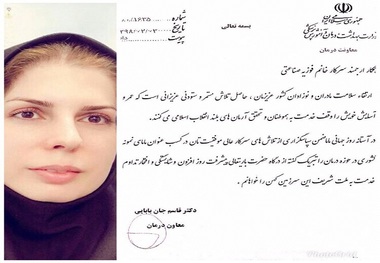 بسمه تعالی
شماره
تاریخ
پیوست
جمهوری اسلامی ایران
وزارت بهداشت، درمان و آموزش پزشکی
معاونت درمان
همکار ارجمند سرکار خانم فوزیه صناعتی
ارتقاء سلامت مادران و نوزادان کشور عزیزمان، حاصل تلاش مستمر و ستودنی عزیزانی است که عمر و
آسایش خویش را وقف خدمت به هموطنان و تحقق آرمان های بلند انقلاب اسلامی می کنند.
در آستانه روز جهانی ماما ضمن سپاسگزاری از تلاش های سرکار عالی موفقیت تان در کسب عنوان مامای نمونه
کشوری در حوزه درمان را تبریک گفته از درگاه حضرت باریتعالی پیشرفت روز افزون و شایستگی و افتخار تداوم
خدمت به ملت شریف این سرزمین کهن را خواهانم.
دکتر قاسم جان بابایی
معاون درمان